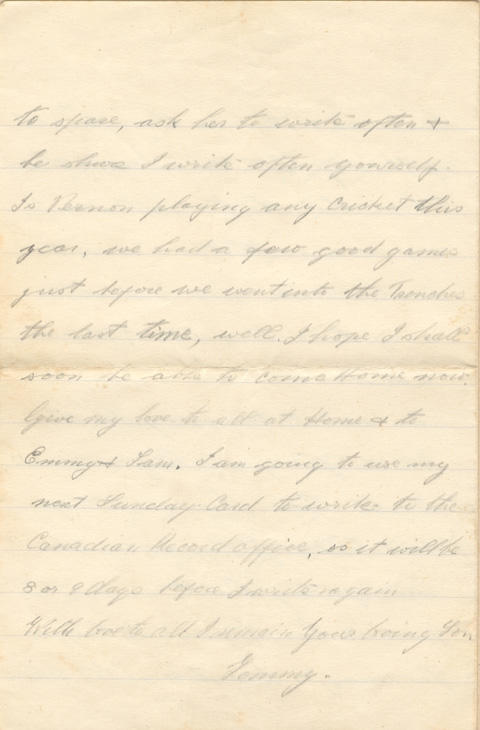 to spare, ask her to write often &
be shure I write often yourself.
Is Vernon playing any Cricket this
year, we had a few good games
just before we went into the Trenches
the last time, well. I hope I shall
soon be able to come Home now.
Give my love to all at Home & to
Emmy & Sam. I am going to use my
next Sunday Card to write to the
Canadian Record office, so it will be
8 or 9 days before I write again
With love to all I remain Your loving Son
Tommy.